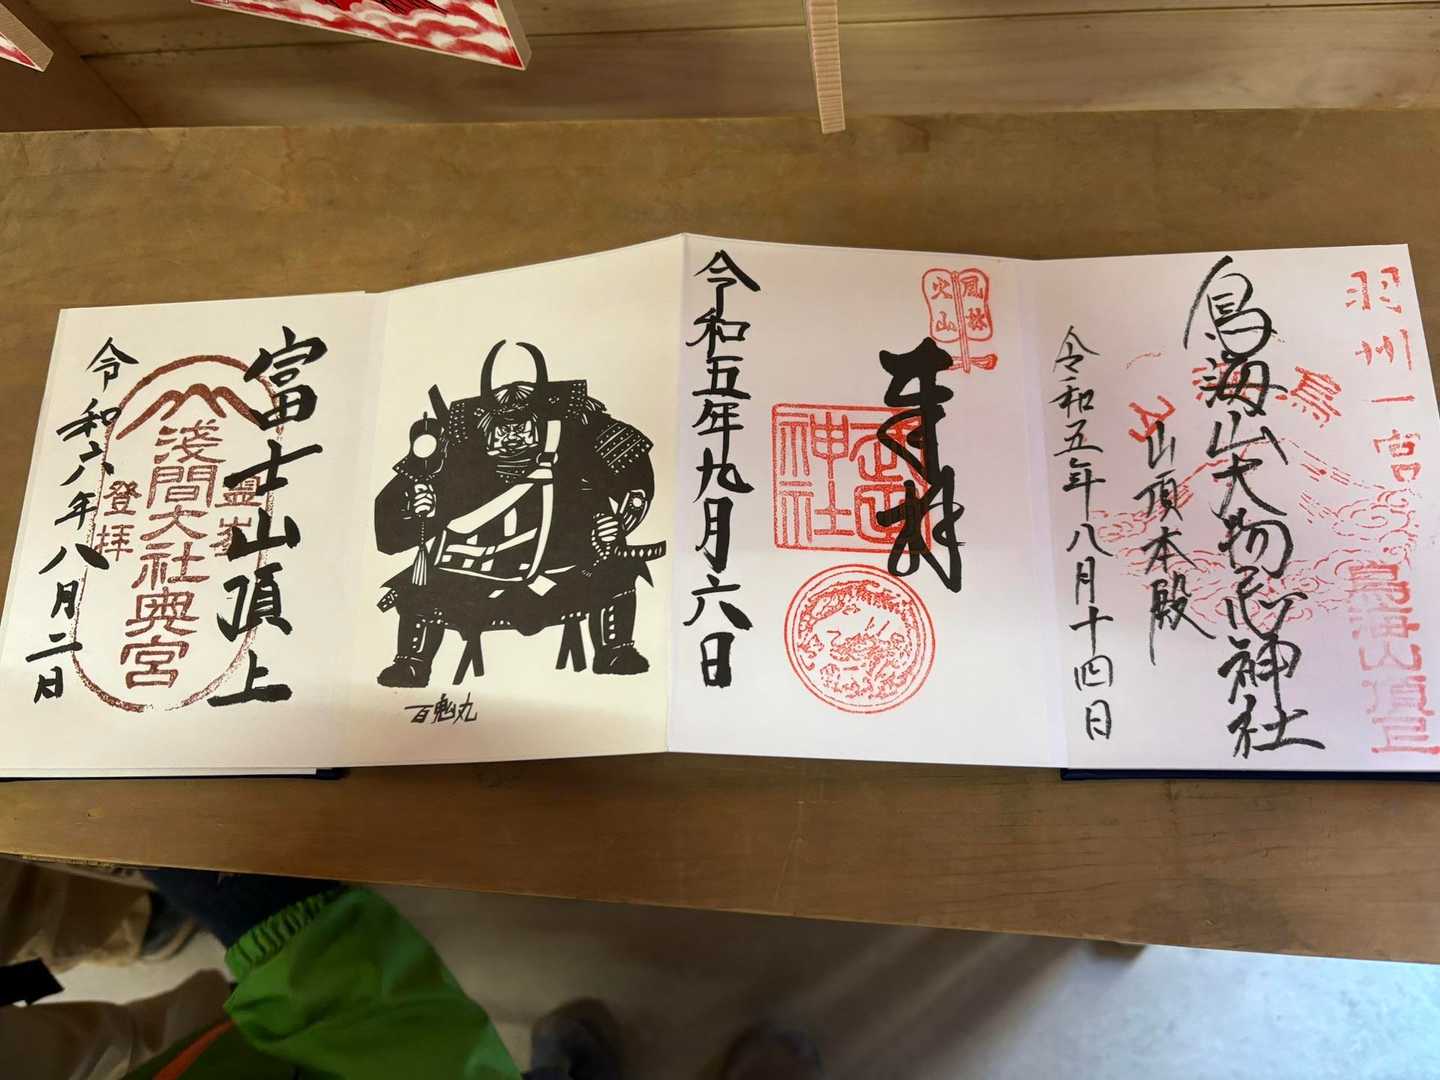 羽州一宮
鳥海山頂
鳥海山
鳥海山大物忌神社
山頂本殿
令和五年八月十四日
風林
火山
奉拝
武田
神社
令和五年九月六日
百鬼丸
富士山頂上
登拝
淺間大社奥宮
令和六年八月二日